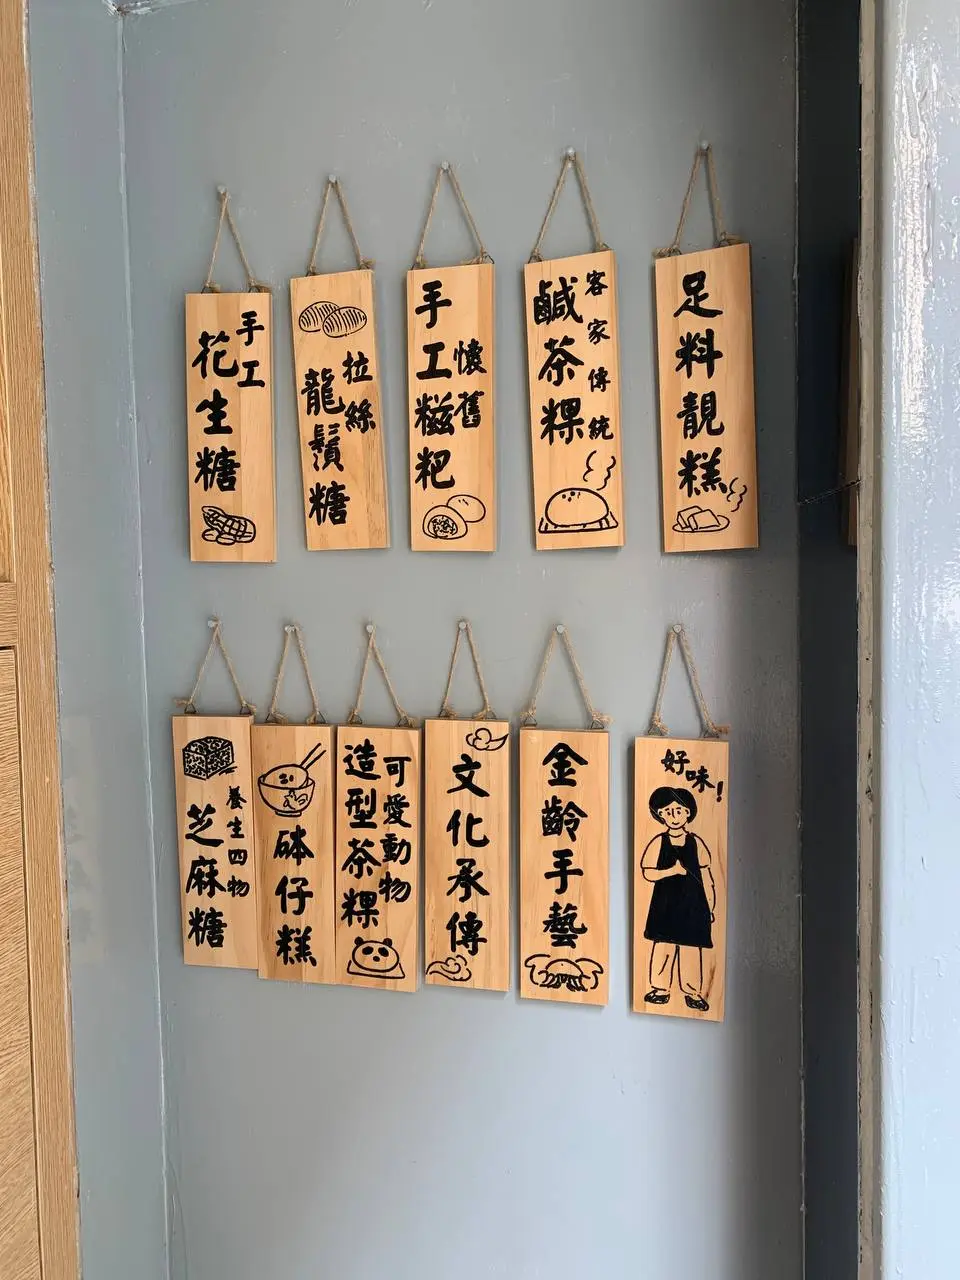 手工
花生糖
拉絲
龍鬚糖
懷舊
手工糍粑
客家傳統
鹹茶粿
足料靚糕
養生四物
芝麻糖
砵仔糕
可愛動物
造型茶粿
文化承傳
金齡手藝
好味！